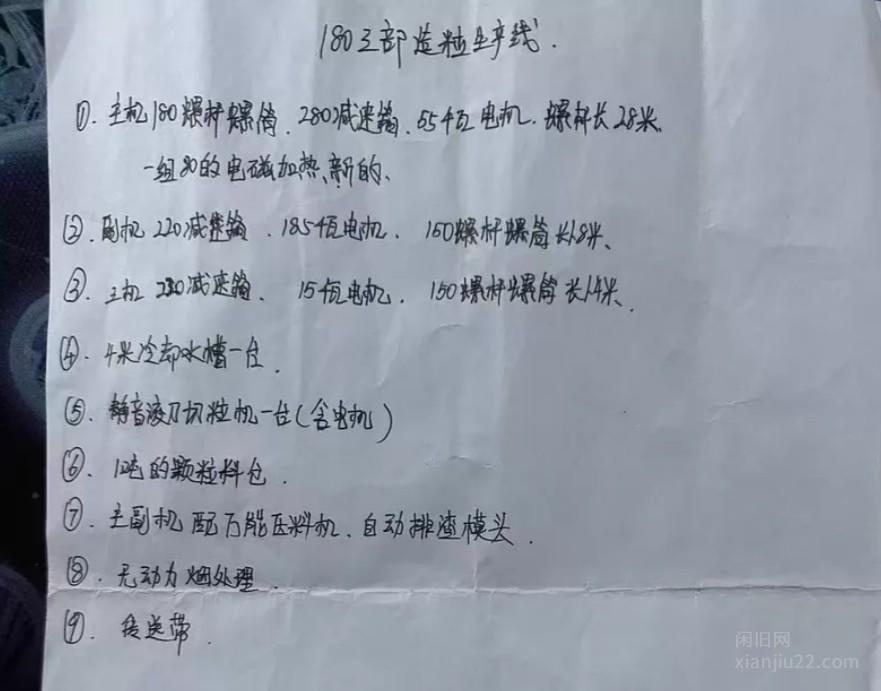 180三部造粒生产线.
①.主机180螺杆螺筒、280减速箱、55千瓦电机.螺杆长2.8米、
一组80的电磁加热、新的、
②.副机220减速箱、18.5千瓦电机、150螺杆螺筒长1.8米、
③.主机 减速箱、15千瓦电机、150螺杆螺筒长1.4米、
④.4米冷却水槽一台.
⑤.静音滚刀切粒机一台(含电机)
⑥.1吨的颗粒料仓.
⑦.主副机配万能压料机、自动排渣模头.
⑧.无动力烟处理.
⑨.传送带.
闲旧网
xianjiu22.com